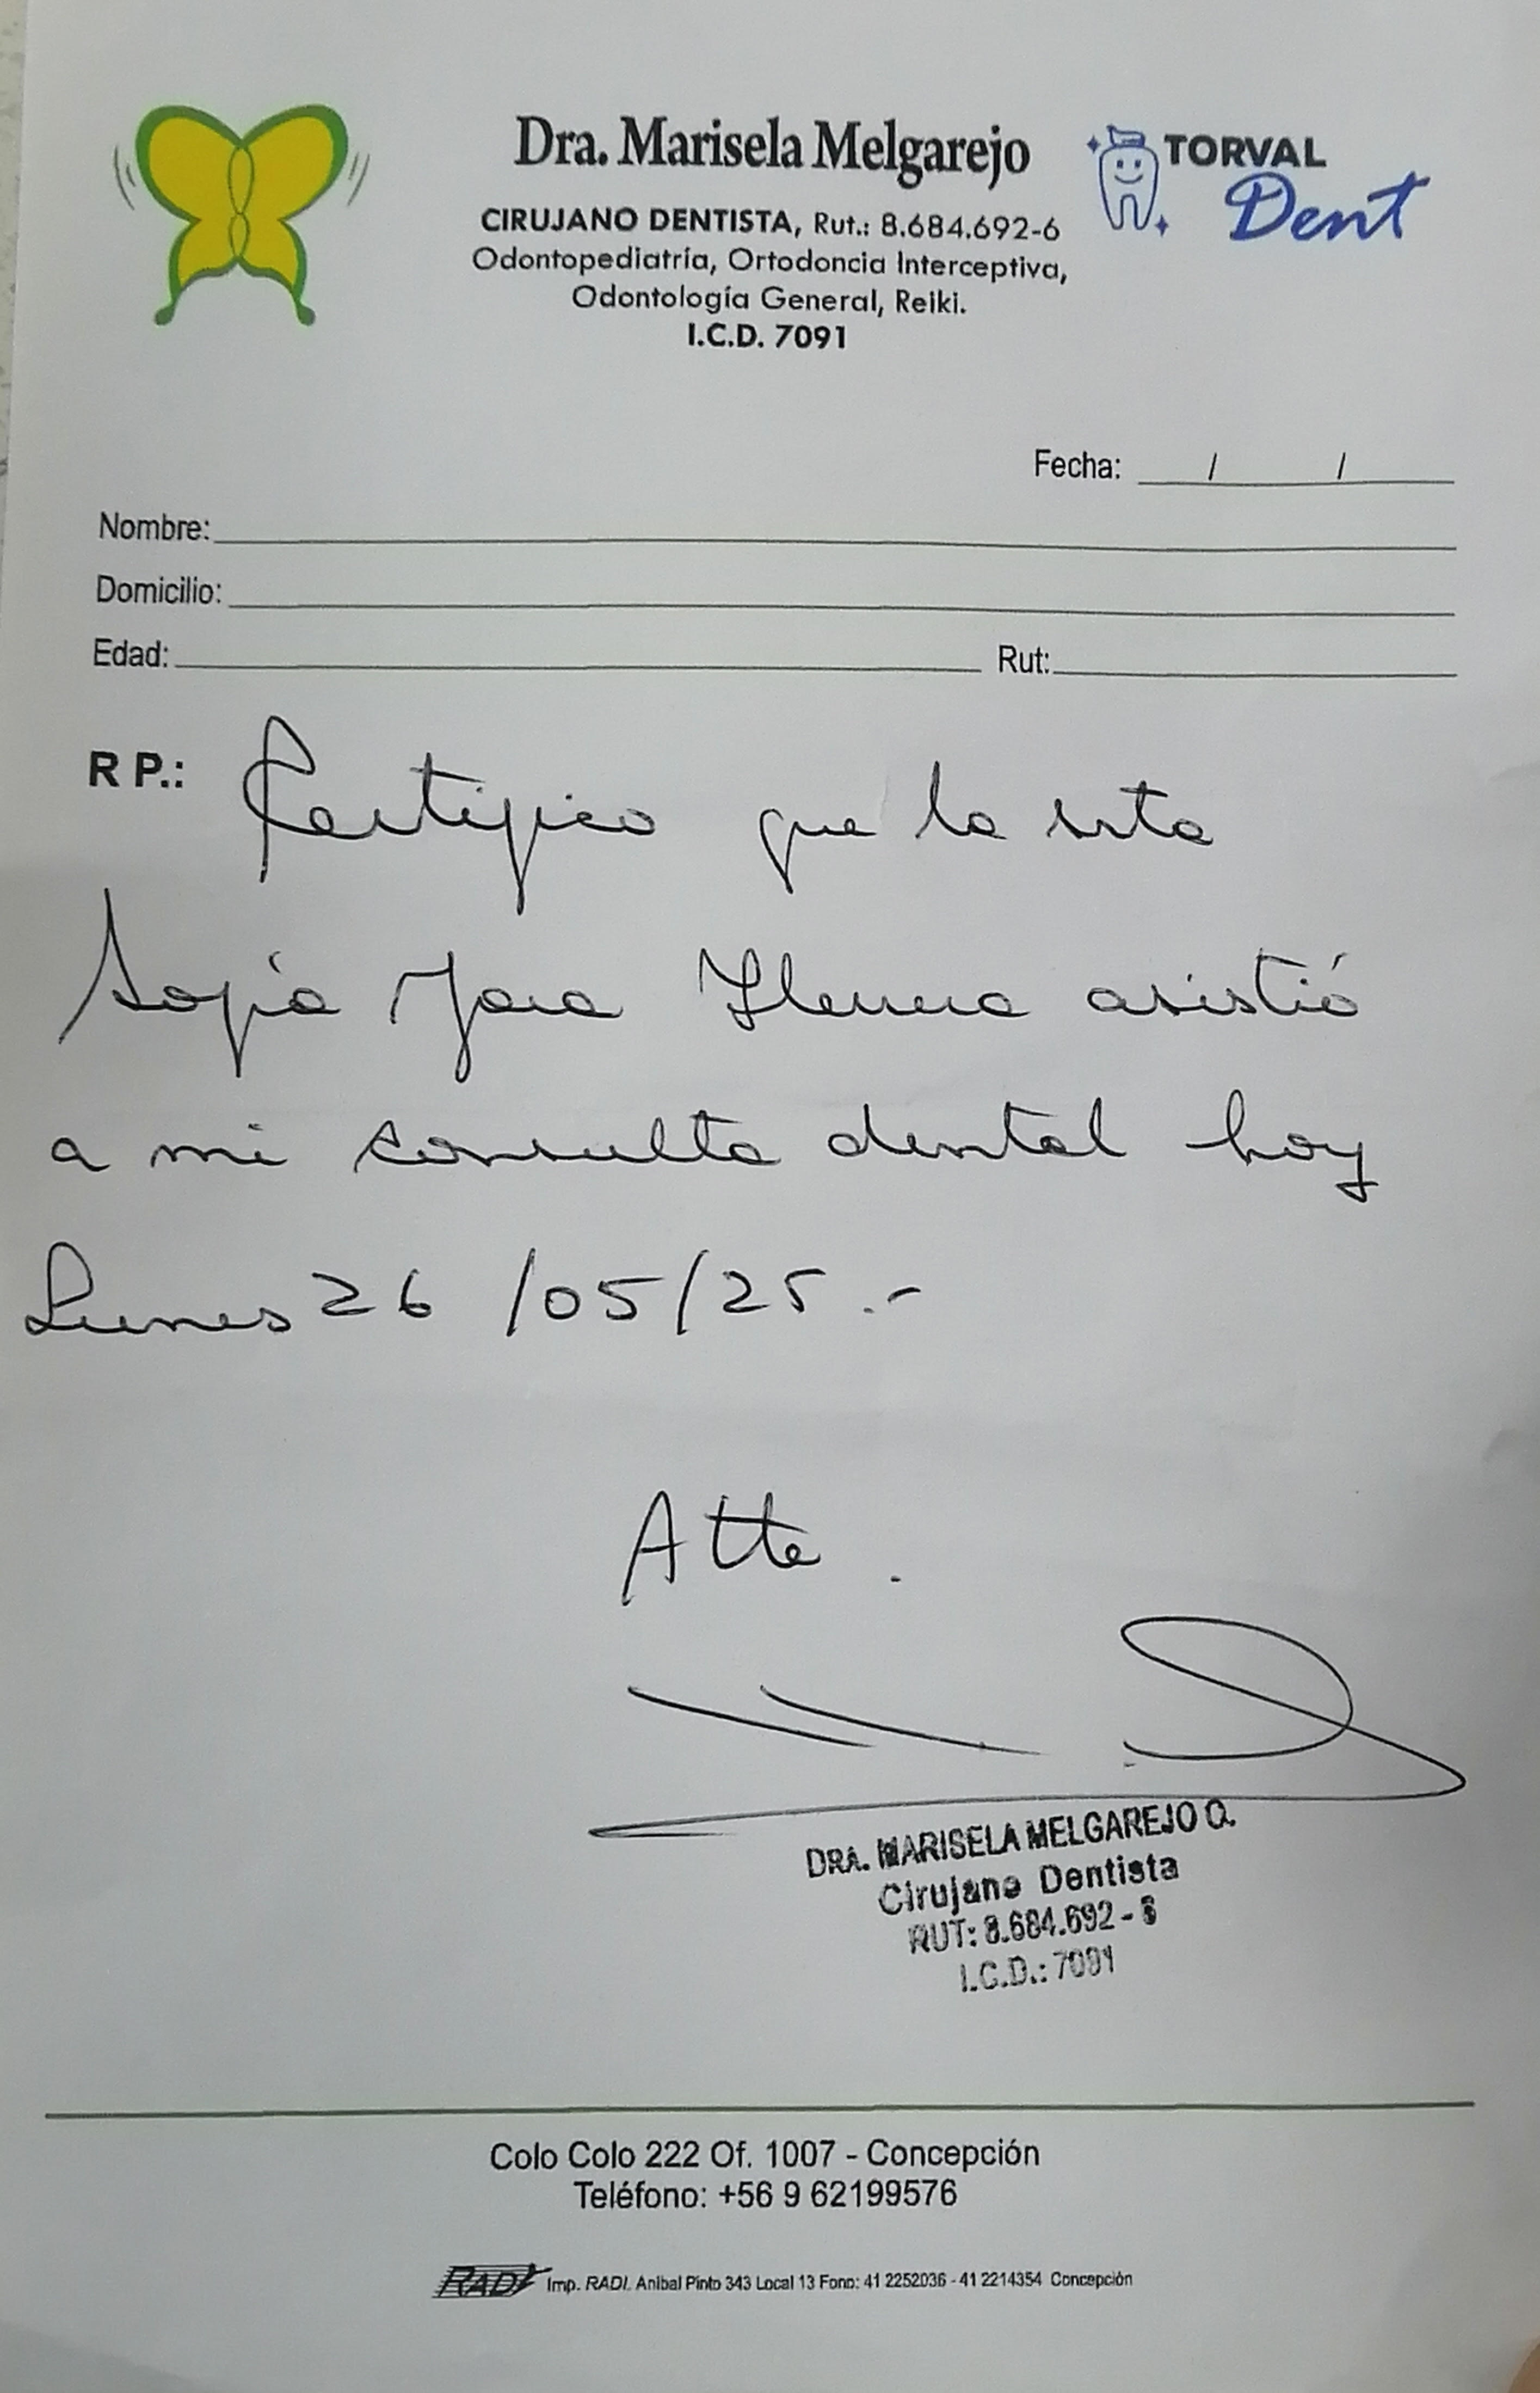 Dra. Marisela Melgarejo
TORVAL
Dent
CIRUJANO DENTISTA, Rut.: 8.684.692-6
Odontopediatría, Ortodoncia Interceptiva,
Odontología General, Reiki.
I.C.D. 7091
Fecha: / /
Nombre:
Domicilio:
Edad: Rut:
R P.: Certifico que la srta
Sofía Jara asistió
a mi consulta dental hoy
Lunes 26 /05/25.-
Atte.
DRA. MARISELA MELGAREJO O.
Cirujano Dentista
RUT: 8.684.692-6
I.C.D.: 7091
Colo Colo 222 Of. 1007 - Concepción
Teléfono: +56 9 62199576
RADI Imp. RADI. Anibal Pinto 343 Local 13 Fono: 41 2252036 - 41 2214354 Concepción